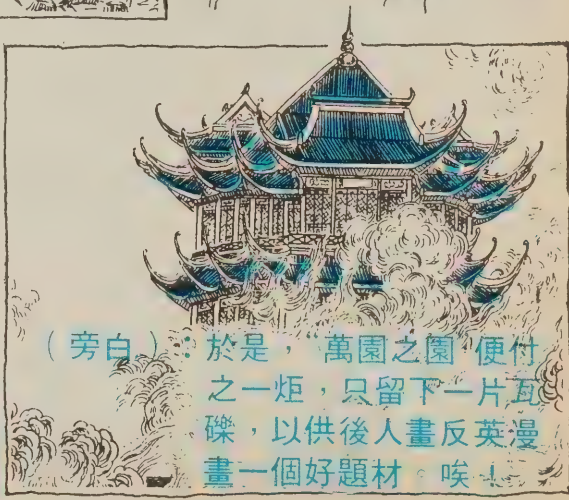 （旁白）：於是，“萬園之園”便付
之一炬，只留下一片瓦
礫，以供後人畫反英漫
畫一個好題材。唉！